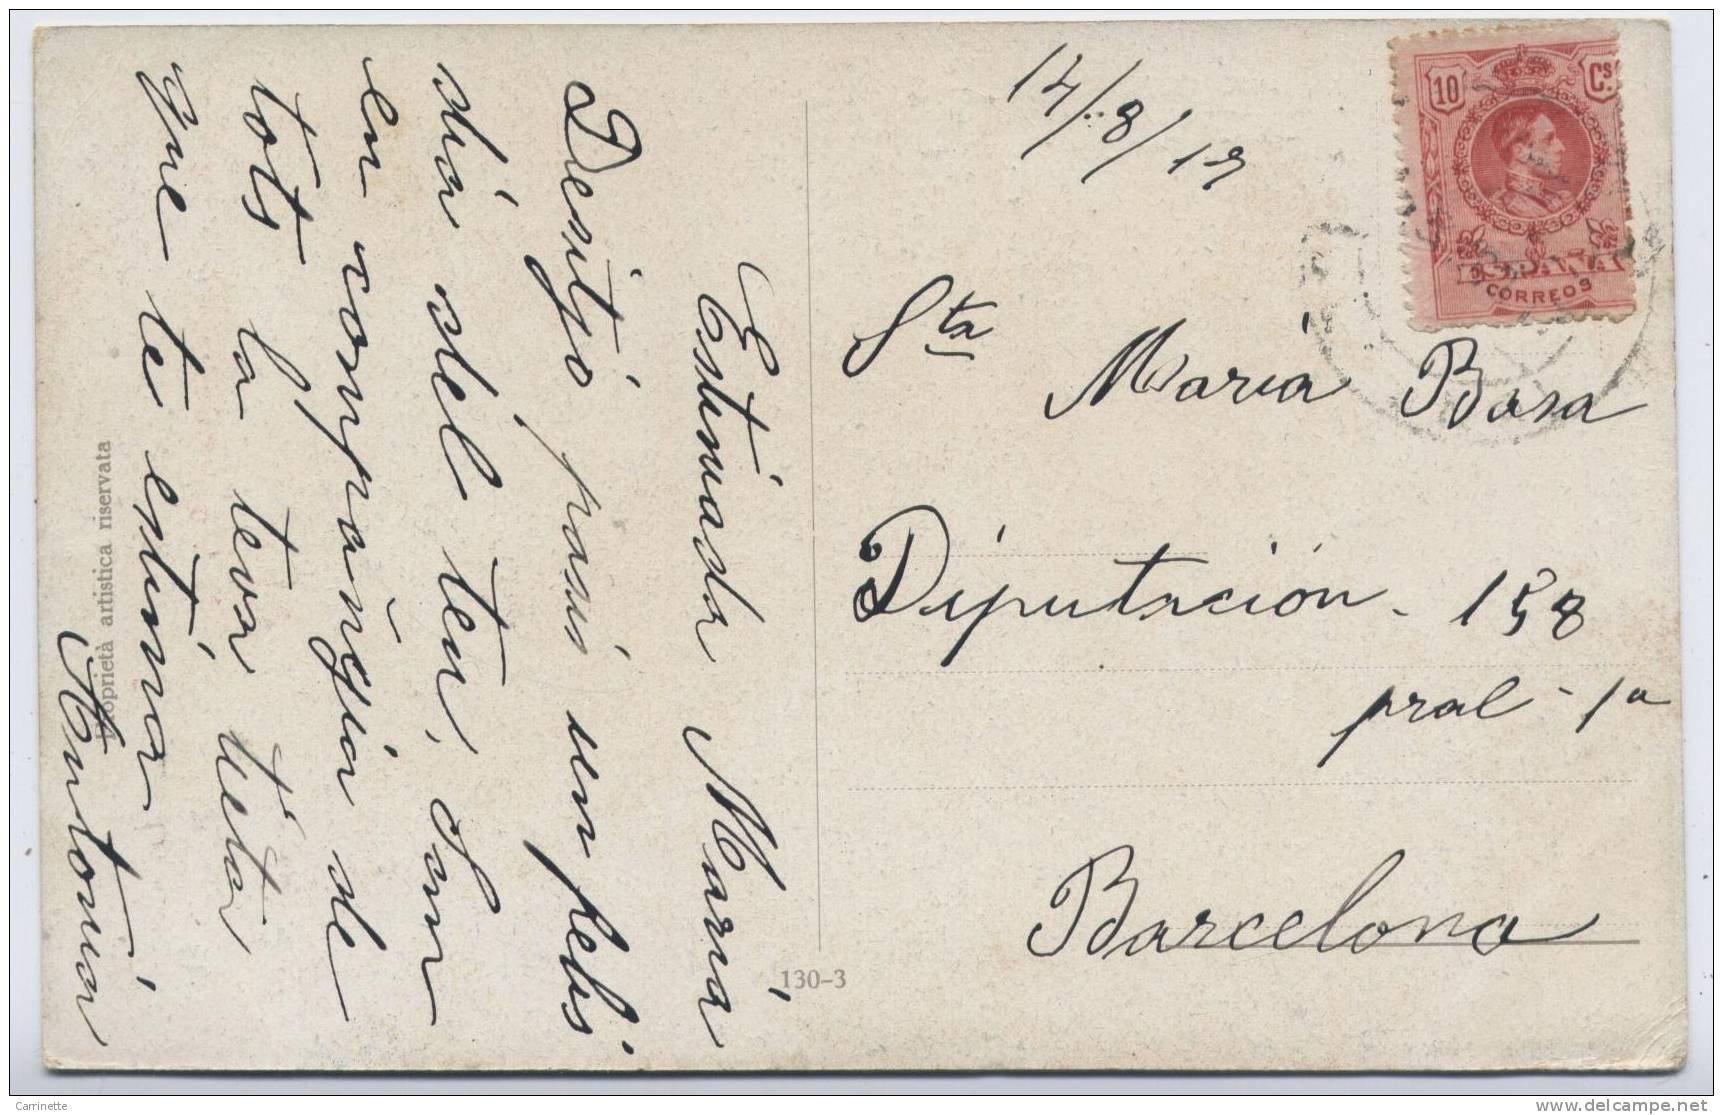 14/8/17
10 Cs.
ESPAÑA
CORREOS
Sta
Maria Basa
Diputación - 158
pral - 1a
Barcelona
Estimada Maria
Desitjo pasis un felis
dia del teu Sant
en compañyia de
tots la teva tieta
que te estima
Antonia
Proprietà artistica riservata
130-3
Carrinette
delcampe.net